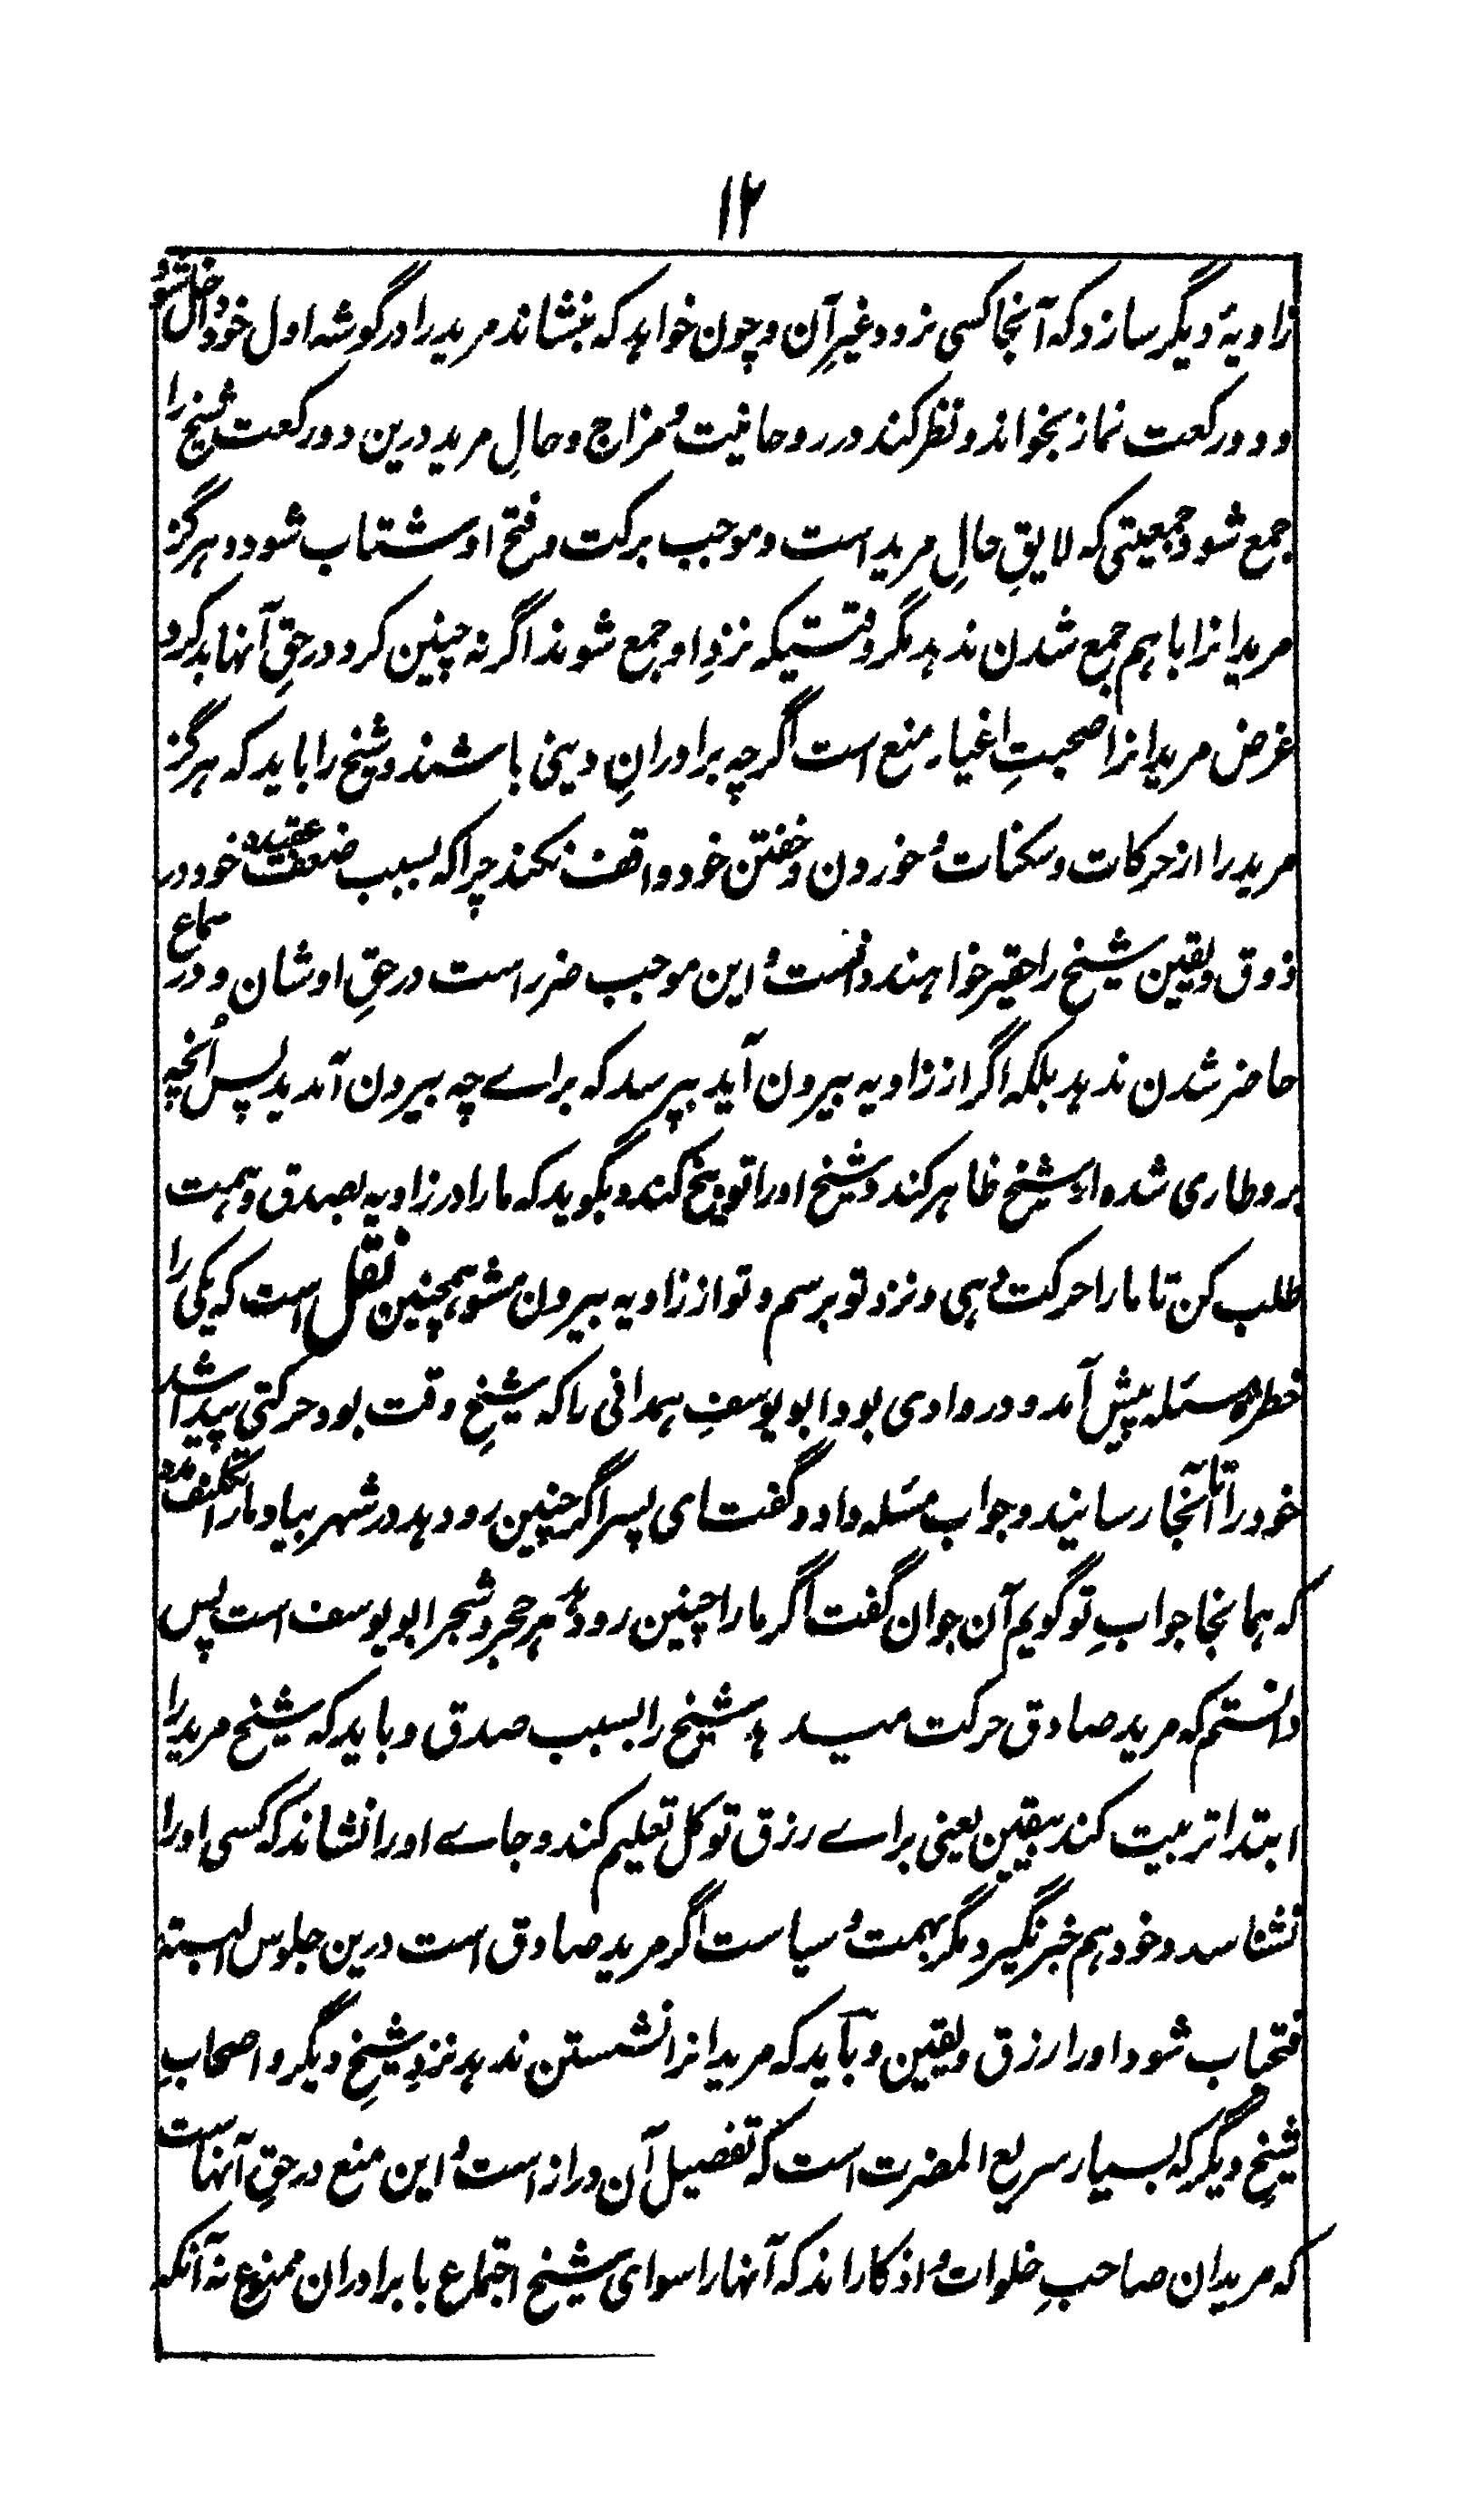 ۱۲
زاویهٔ دیگر سازد که آنجا کسی نرود غیر آن و چون خواهد که بنشاند مرید را در گوشه اول خود داخل شود
و دو رکعت نماز بخواند و نظر کند در روحانیت و مزاج و حالِ مرید درین دو رکعت شیخ را
جمع شود جمعیتی که لایقِ حالِ مرید است و موجب برکت و فتح او شتاب شود و هرگز
مریدانرا باهم جمع شدن ندهد مگر وقتیکه نزدِ او جمع شوند اگر نه چنین کرد در حقِ آنها بد کرد
غرض مریدانرا صحبتِ اغیار منع است اگرچه برادرانِ دینی باشند و شیخ را باید که هرگز
مرید را از حرکات و سکنات و خوردن و خفتن خود واقف نکند چرا که بسبب ضعف عقیده خود در
ذوق و یقین شیخ را حقیر خواهند دانست و این موجب ضرر است در حقِ اوشان و در سماع
حاضر شدن ندهد بلکه اگر از زاویه بیرون آید بپرسد که براے چه بیرون آمدید پس اُنچه
برو طاری شده او بشیخ ظاهر کند و شیخ او را توبیخ کند و بگوید که ما را در زاویه بصدق و همت
طلب کن تا ما را حرکت دهی و نزد تو برسم و تو از زاویه بیرون مشو همچنین نقل است که یکی را
خطرهٔ مسئله پیش آمد و در وادی بود ابو یوسفِ همدانی را که شیخِ وقت بود حرکتی پیدا شد
خود را تا آنجا رسانید و جواب مسئله داد و گفت ای پسر اگر چنین رو دهد در شهر بیا و ما را تکلیف مده
که همانجا جوابِ تو گویم آن جوان گفت اگر ما را چنین رو دهد هر حجر و شجر ابو یوسف است پس
دانستم که مرید صادق حرکت میدهد شیخ را بسبب صدق و باید که شیخ مرید را
ابتدا تربیت کند بیقین یعنی براے رزق توکل تعلیم کند و جاے او را نشاند که کسی او را
نشناسد و خود هم خبر نگیرد مگر بهمت و سیاست اگر مرید صادق است درین جلوس البته
فتحیاب شود او را رزق و یقین و باید که مریدانرا نشستن ندهد نزدِ شیخِ دیگر و اصحابِ
شیخِ دیگر که بسیار سریع المضرت است که تفصیل آن دراز است و این منع در حقِ آنها ست
که مریدان صاحبِ خلوات و اذکار اند که آنها را سوای شیخ اجتماع با برادران ممنوع نه آنکه